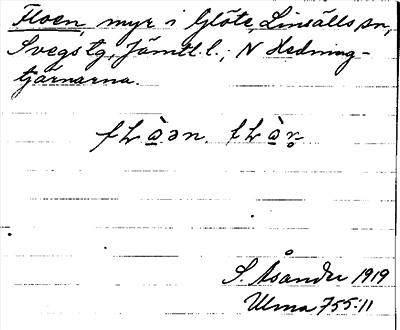 Floen, myr i Glöte, Linsälls sn,
Svegs tg, Jämtl. l.; N Hedning-
tjärnarna.
fLà̱ən. fLà̱r̥
S. Åsander 1919
Ulma 755:11